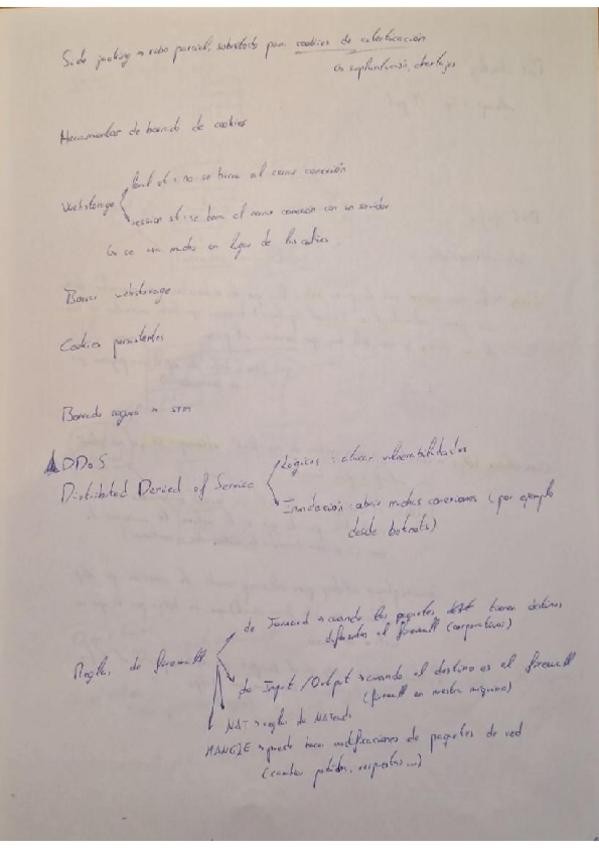 Side jacking → robo parcial, sobretodo para cookies de autentificación
↳ suplantación, chantajes
Herramientas de borrado de cookies
Webstorage
local st: no se borra al cerrar conexión
session st: se borra al cerrar conexión con un servidor
↳ se usa mucho en lugar de las cookies
Borrar webstorage
Cookies persistentes
Borrado seguro →
DDoS
Distributed Denied of Service
Lógicos: atacar vulnerabilidades
Inundación: abrir muchas conexiones (por ejemplo
desde botnets)
Reglas de firewall
de Forward → cuando los paquetes tienen destinos
diferentes al firewall (corporativos)
de Input/Output → cuando el destino es el firewall
(firewall en nuestra máquina)
NAT → reglas de
MANGLE → puede hacer modificaciones de paquetes de red
(cambiar pedidos, respuestas...)